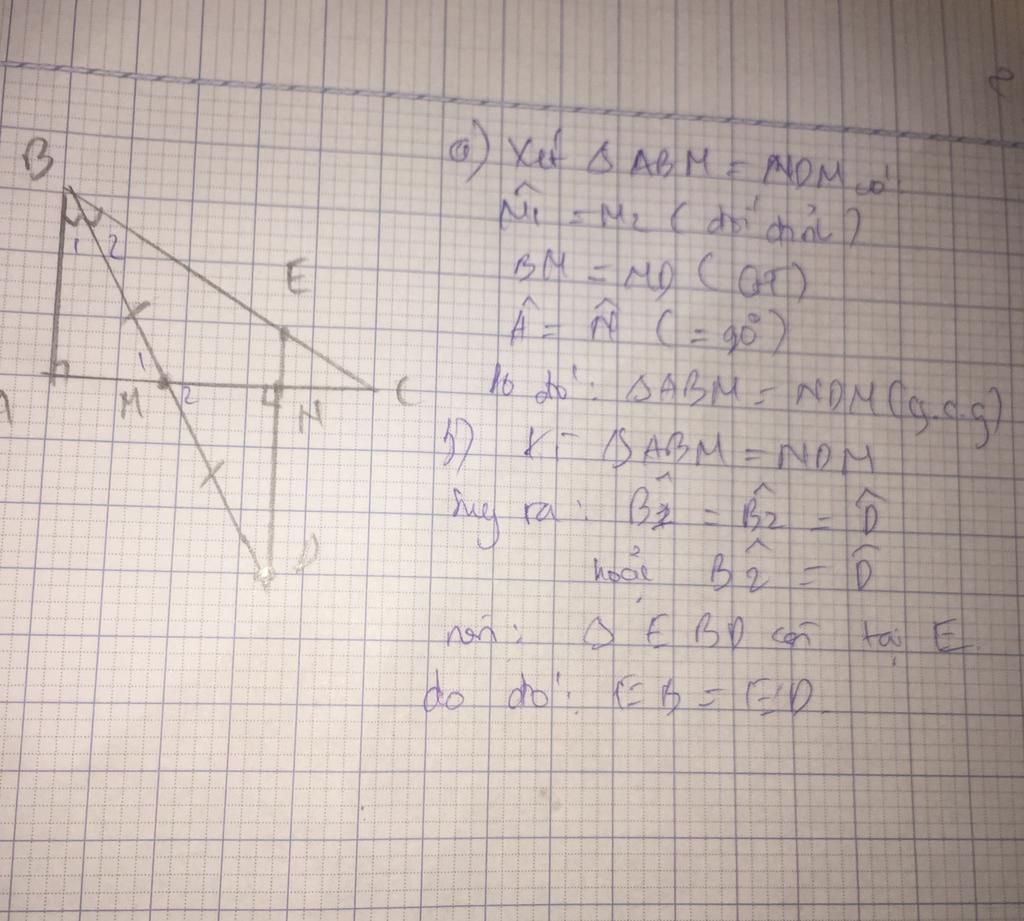 B
1 2
E
1
M 2 N C
D
a) Xét Δ ABM = NDM có
M̂1 = M2 (đối đỉnh)
BM = MD (GT)
Â = N̂ (= 90°)
do đó: ΔABM = NDM (g.c.g)
b) Δ ABM = NDM
Suy ra: = B̂2 = D̂
hoặc B̂2 = D̂
nên: Δ EBD cân tại E
do đó: EB = ED